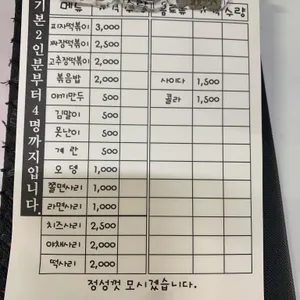 기본2인분부터 4명까지입니다.
메뉴 가격 수량 음료류 가격 수량
피자떡볶이 3,000
짜장떡볶이 2,500
고추장떡볶이 2,000
볶음밥 2,000 사이다 1,500
야끼만두 500 콜라 1,500
김말이 500
못난이 500
계란 500
오뎅 1,000
쫄면사리 1,000
라면사리 1,000
치즈사리 2,500
야채사리 2,000
떡사리 2,000
정성껏 모시겠습니다.